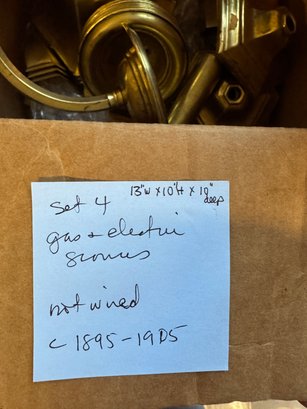 Set 4 13"W x 10"H x 10" deep
gas + electric
sconces
not wired
c 1895-1905